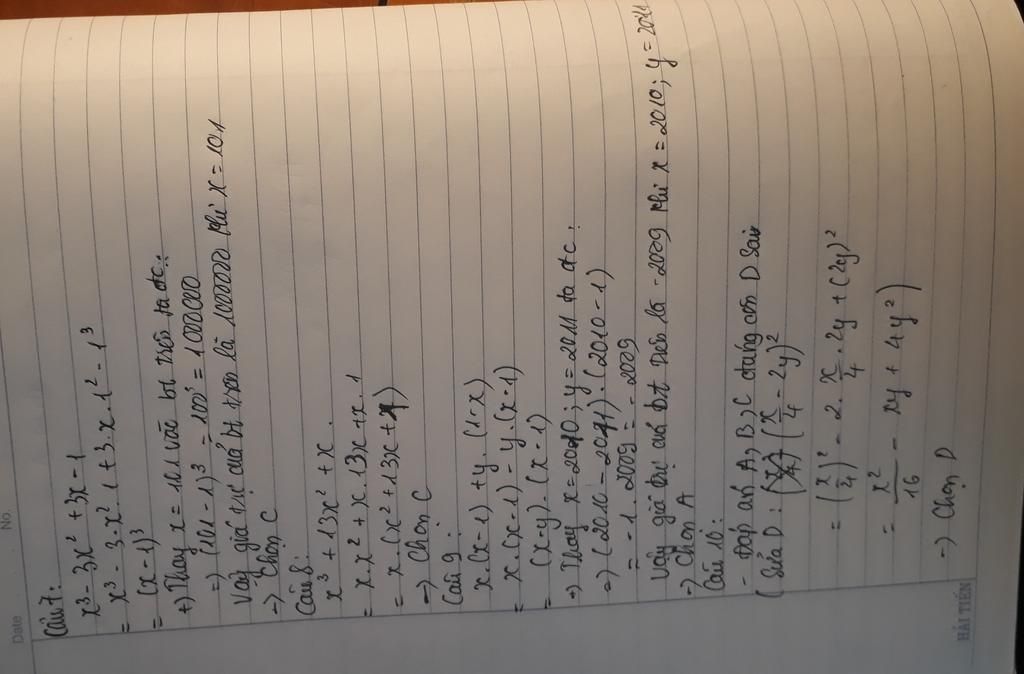 Date
No.
Câu 7:
x³ - 3x² + 3x - 1
= x³ - 3. x². 1 + 3. x. 1² - 1³
= (x - 1)³
+) Thay x = 101 vào bt trên ta đc:
=) (101 - 1)³ = 100³ = 1000000
Vậy giá trị của bt trên là 1000000 khi x = 101
-) Chọn C
Câu 8:
x³ + 13x² + x.
= x. x² + x. 13x + x. 1
= x. (x² + 13x + 1)
-) Chọn C
Câu 9:
x. (x - 1) + y. (1 - x)
= x. (x - 1) - y. (x - 1)
= (x - y). (x - 1)
+) Thay x = 2010; y = 2011 ta đc:
=) (2010 - 2011). (2010 - 1)
= - 1. 2009 = - 2009
Vậy giá trị của bt trên là - 2009 khi x = 2010; y = 2011
-) Chọn A
Câu 10:
- Đáp án A, B, C đúng còn D sai
(Sửa D: (x/4 - 2y)²
= (x/4)² - 2. x/4. 2y + (2y)²
= x²/16 - xy + 4y²)
-) Chọn D
HẢI TIẾN